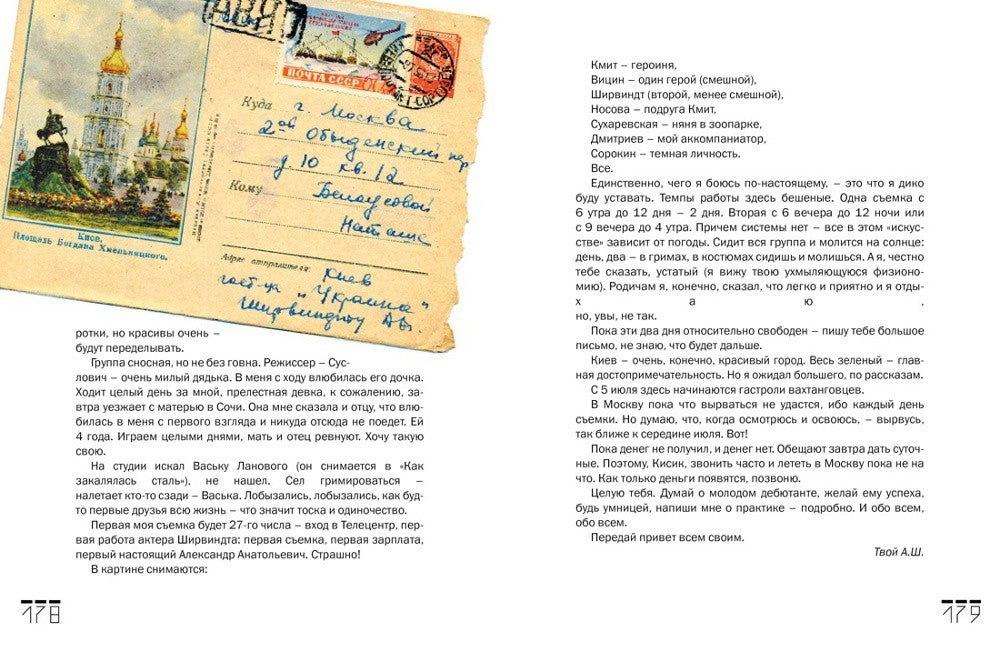 АВИА
ПОЧТА СССР
Куда г. Москва
2ой Обыденский пер.
д. 10 кв. 12
Кому Белоусовой
Наташе
Адрес отправителя: Киев
гост-ца „Украина“
Ширвиндту А.
Киев.
Площадь Богдана Хмельницкого.
ротки, но красивы очень –
будут переделывать.
Группа сносная, но не без говна. Режиссер – Сус-
лович – очень милый дядька. В меня с ходу влюбилась его дочка.
Ходит целый день за мной, прелестная девка, к сожалению, за-
втра уезжает с матерью в Сочи. Она мне сказала и отцу, что влю-
билась в меня с первого взгляда и никуда отсюда не поедет. Ей
4 года. Играем целыми днями, мать и отец ревнуют. Хочу такую
свою.
На студии искал Ваську Ланового (он снимается в «Как
закалялась сталь»), не нашел. Сел гримироваться –
налетает кто-то сзади – Васька. Лобызались, лобызались, как буд-
то первые друзья всю жизнь – что значит тоска и одиночество.
Первая моя съемка будет 27-го числа – вход в Телецентр, пер-
вая работа актера Ширвиндта: первая съемка, первая зарплата,
первый настоящий Александр Анатольевич. Страшно!
В картине снимаются:
178
Кмит – героиня,
Вицин – один герой (смешной),
Ширвиндт (второй, менее смешной),
Носова – подруга Кмит,
Сухаревская – няня в зоопарке,
Дмитриев – мой аккомпаниатор,
Сорокин – темная личность.
Все.
Единственно, чего я боюсь по-настоящему, – это что я дико
буду уставать. Темпы работы здесь бешеные. Одна съемка с
6 утра до 12 дня – 2 дня. Вторая с 6 вечера до 12 ночи или
с 9 вечера до 4 утра. Причем системы нет – все в этом «искус-
стве» зависит от погоды. Сидит вся группа и молится на солнце:
день, два – в гримах, в костюмах сидишь и молишься. А я, честно
тебе сказать, устатый (я вижу твою ухмыляющуюся физионо-
мию). Родичам я, конечно, сказал, что легко и приятно и я отды-
х а ю ,
но, увы, не так.
Пока эти два дня относительно свободен – пишу тебе большое
письмо, не знаю, что будет дальше.
Киев – очень, конечно, красивый город. Весь зеленый – глав-
ная достопримечательность. Но я ожидал большего, по рассказам.
С 5 июля здесь начинаются гастроли вахтанговцев.
В Москву пока что вырваться не удастся, ибо каждый день
съемки. Но думаю, что, когда осмотрюсь и освоюсь, – вырвусь,
так ближе к середине июля. Вот!
Пока денег не получил, и денег нет. Обещают завтра дать суточ-
ные. Поэтому, Кисик, звонить часто и лететь в Москву пока не на
что. Как только деньги появятся, позвоню.
Целую тебя. Думай о молодом дебютанте, желай ему успеха,
будь умницей, напиши мне о практике – подробно. И обо всем,
обо всем.
Передай привет всем своим.
Твой А.Ш.
179